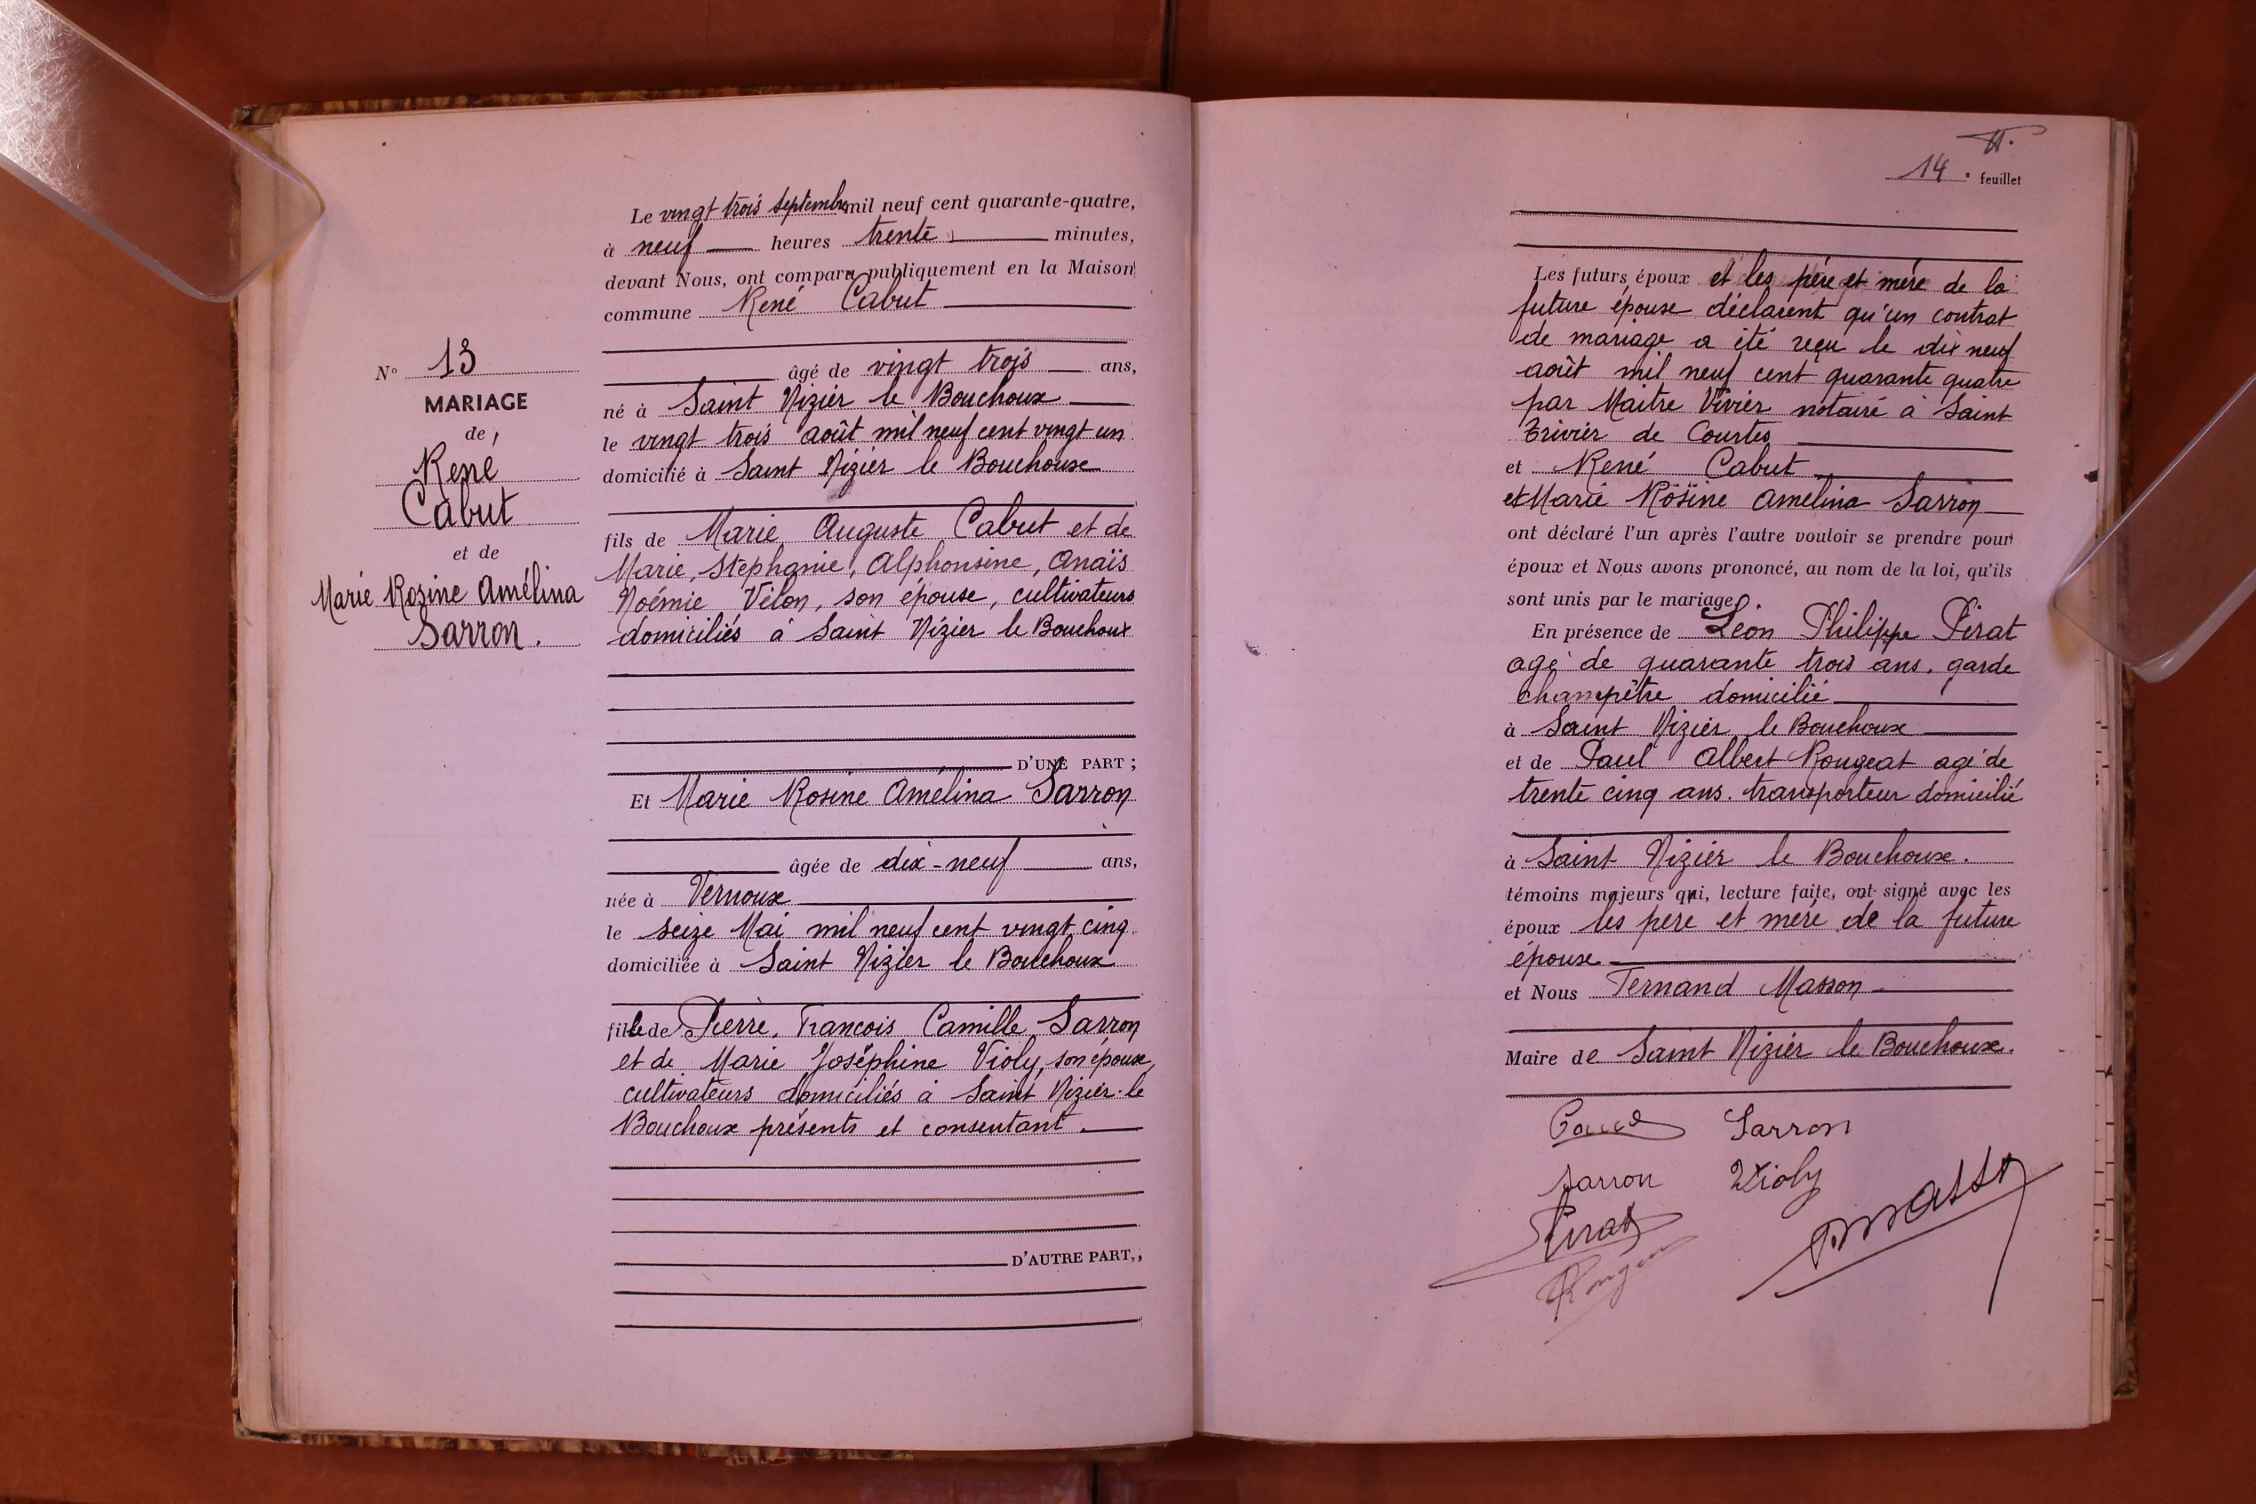 N° 13
MARIAGE
de
René
Cabut
et de
Marie Rosine Amélina
Sarron.
Le vingt trois septembre mil neuf cent quarante-quatre,
à neuf heures trente minutes,
devant Nous, ont comparu publiquement en la Maison
commune René Cabut
âgé de vingt trois ans,
né à Saint Nizier le Bouchoux
le vingt trois août mil neuf cent vingt un
domicilié à Saint Nizier le Bouchoux
fils de Marie Auguste Cabut et de
Marie, Stéphanie, Alphonsine, Anaïs
Noémie Vélon, son épouse, cultivateurs
domiciliés à Saint Nizier le Bouchoux
D'UNE PART ;
Et Marie Rosine Amélina Sarron
âgée de dix-neuf ans,
née à Vernoux
le seize Mai mil neuf cent vingt cinq
domiciliée à Saint Nizier le Bouchoux
fille de Pierre, François Camille Sarron
et de Marie Joséphine Violy, son épouse,
cultivateurs domiciliés à Saint Nizier-le
Bouchoux présents et consentant.
D'AUTRE PART,,
14. feuillet
Les futurs époux et les père et mère de la
future épouse déclarent qu'un contrat
de mariage a été reçu le dix neuf
août mil neuf cent quarante quatre
par Maitre Vivier notaire à Saint
Trivier de Courtes
et René Cabut
et Marie Rosine Amélina Sarron
ont déclaré l'un après l'autre vouloir se prendre pour
époux et Nous avons prononcé, au nom de la loi, qu'ils
sont unis par le mariage.
En présence de Léon Philippe Pirat
agé de quarante trois ans, garde
champêtre domicilié
à Saint Nizier le Bouchoux
et de Paul Albert Rougeat agé de
trente cinq ans. transporteur domicilié
à Saint Nizier le Bouchoux.
témoins majeurs qui, lecture faite, ont signé avec les
époux les père et mère de la future
épouse
et Nous Fernand Masson
Maire de Saint Nizier le Bouchoux.
Sarron
Sarron Violy
Pirat Masson